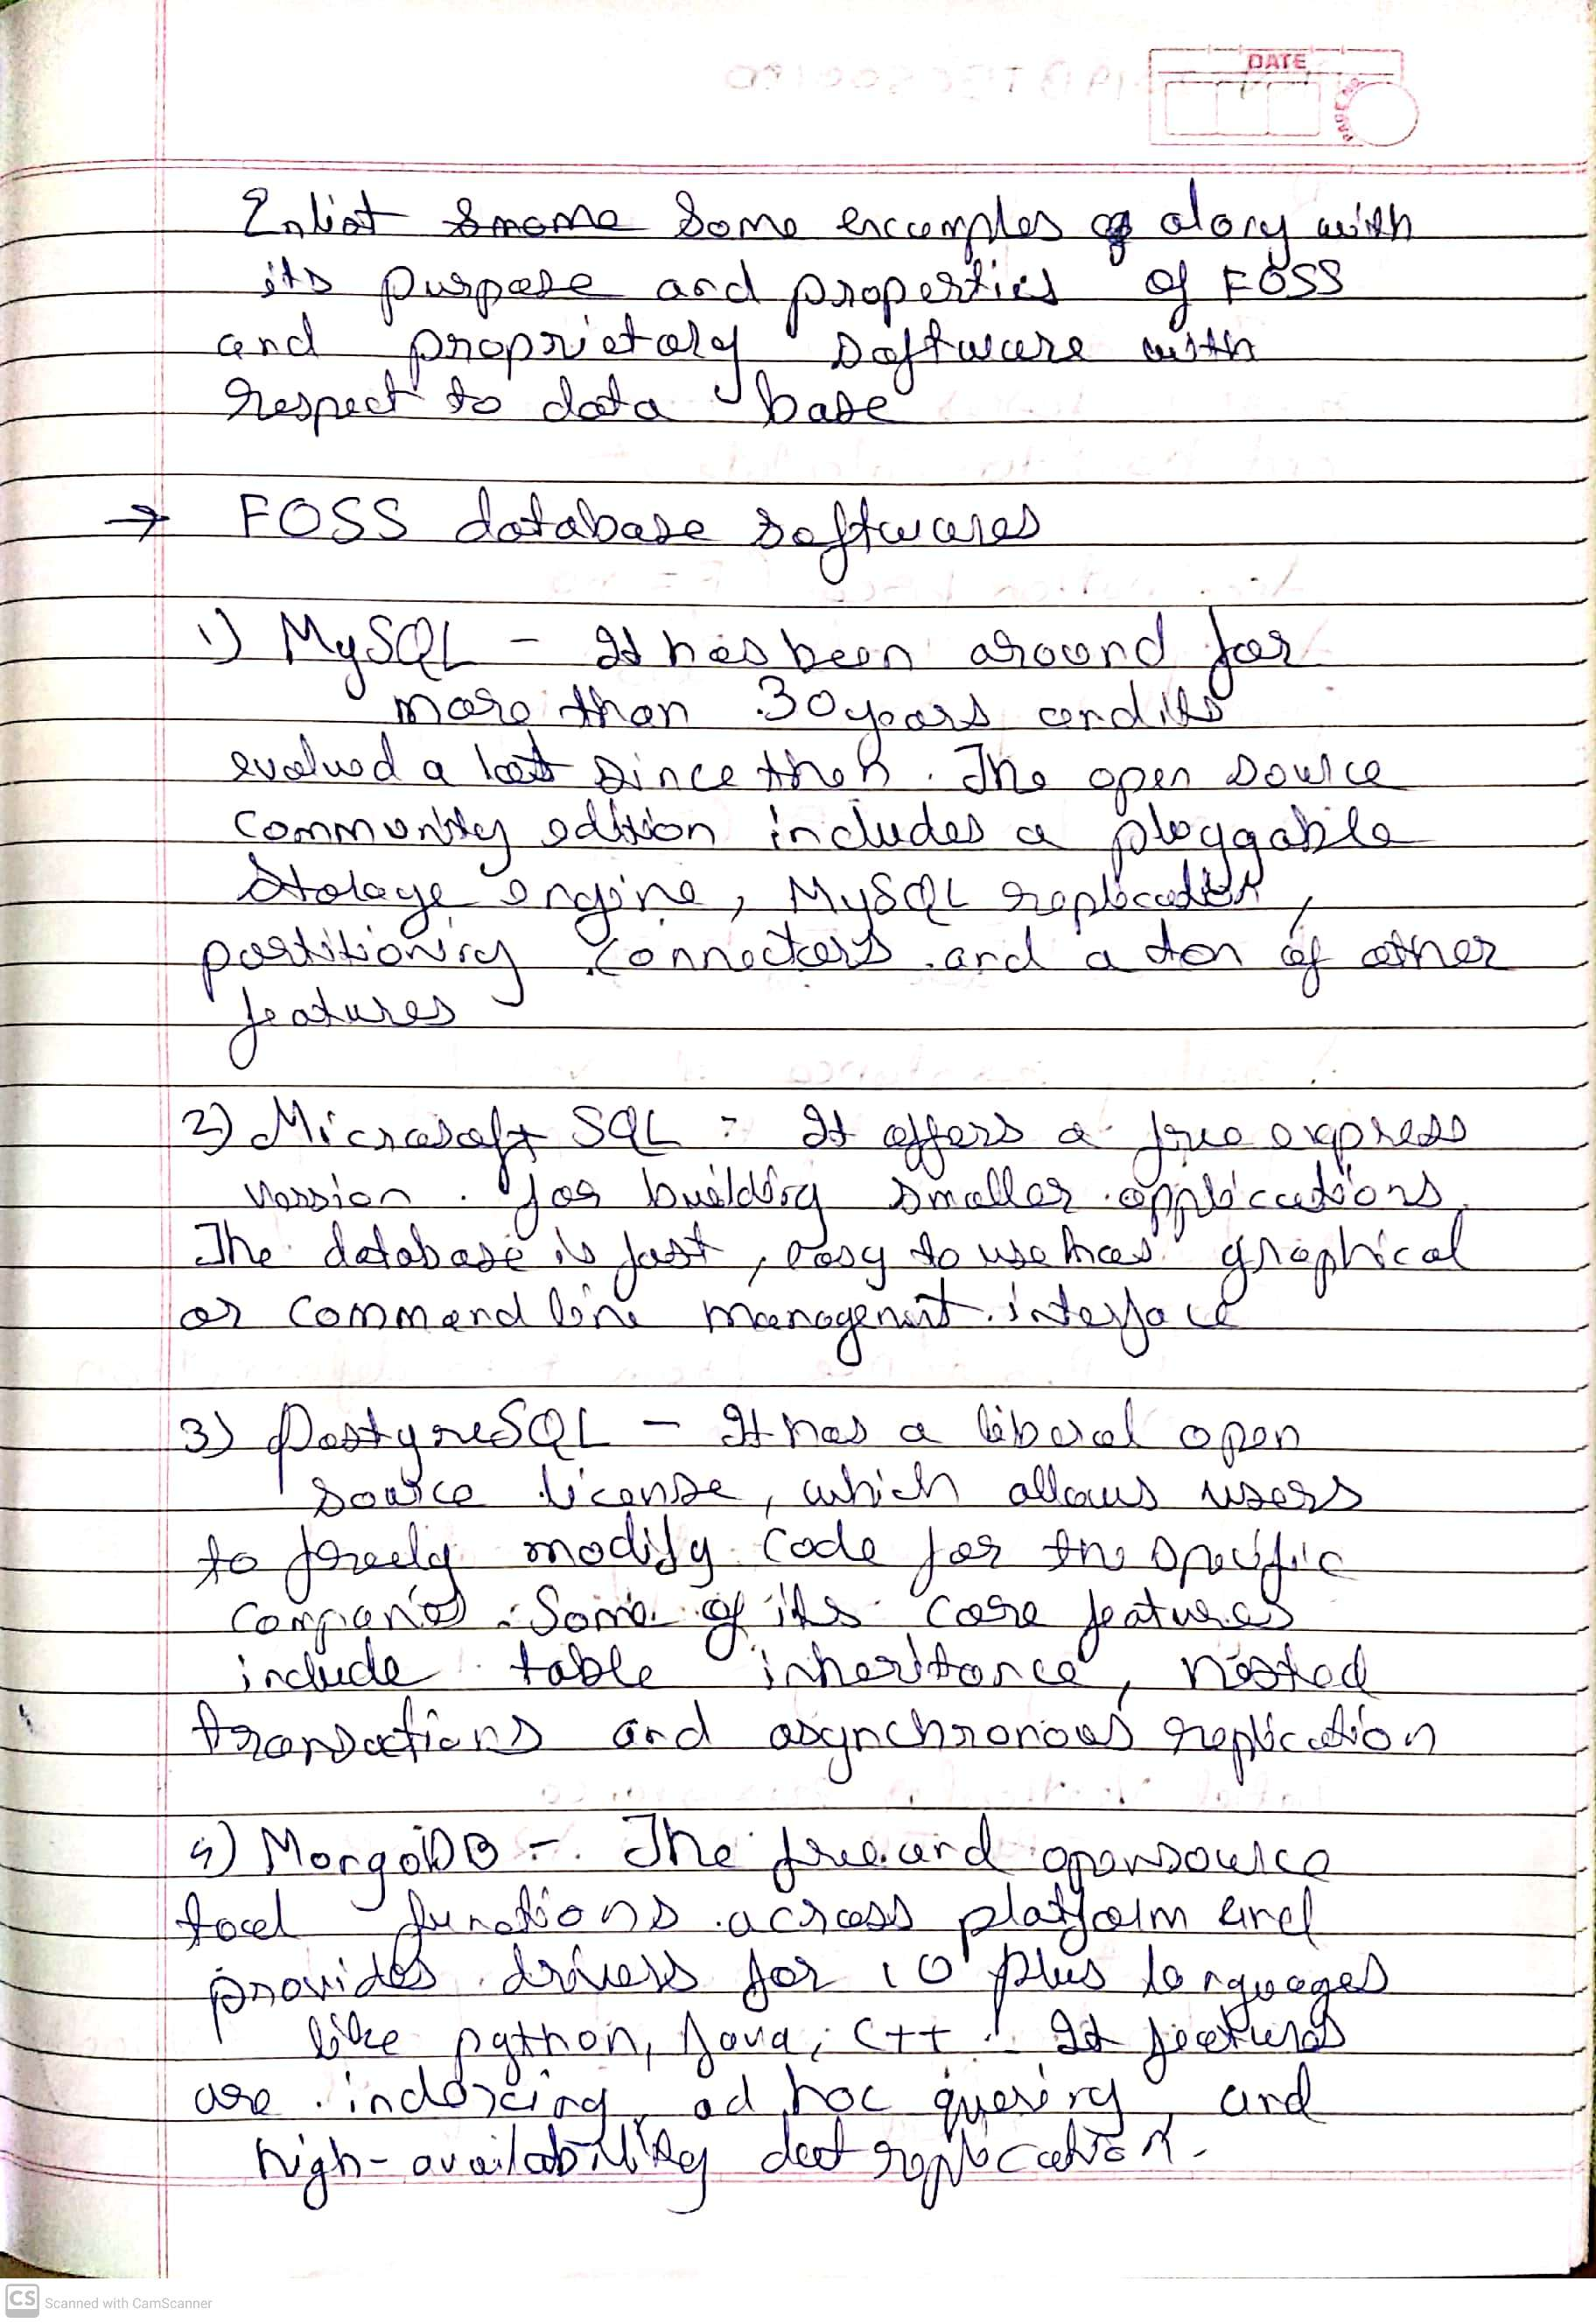 DATE
PAGE NO.
Enlist ~~smome~~ Some examples ~~of~~ along with
its purpose and properties of FOSS
and proprietary software with
respect to data base
→ FOSS database softwares
1) MySQL - It has been around for
more than 30 years and its
evolved a lot since then. The open source
community edition includes a pluggable
storage engine, MySQL replication,
partitioning connectors and a ton of other
features
2) Microsoft SQL - It offers a free express
version for building smaller applications.
The database is fast, easy to use has graphical
or command line management interface
3) PostgreSQL - It has a liberal open
source license, which allows users
to freely modify code for the specific
companies. Some of its core features
include table inheritance, nested
transactions and asynchronous replication
4) MongoDB - The free and opensource
tool functions across platform and
provides drivers for 10 plus languages
like python, Java, C++. It features
are indexing, ad hoc querying, and
high-availability dat replication.
CS Scanned with CamScanner